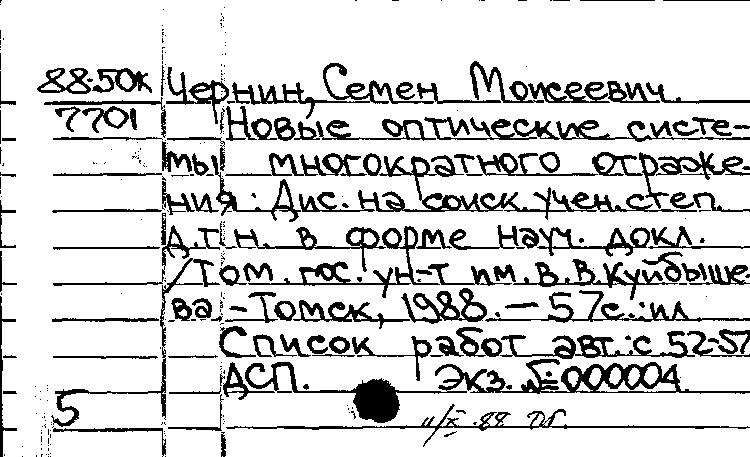 88-50к Чернин, Семен Моисеевич.
7701 Новые оптические систе-
мы многократного отраже-
ния: Дис. на соиск. учен. степ.
д. т. н. в форме науч. докл.
/ Том. гос. ун-т им. В.В. Куйбыше-
ва. - Томск, 1988. - 57 с.: ил
Список работ авт.: с. 52-57
ДСП. Экз. №: 000004.
5
11/X-88